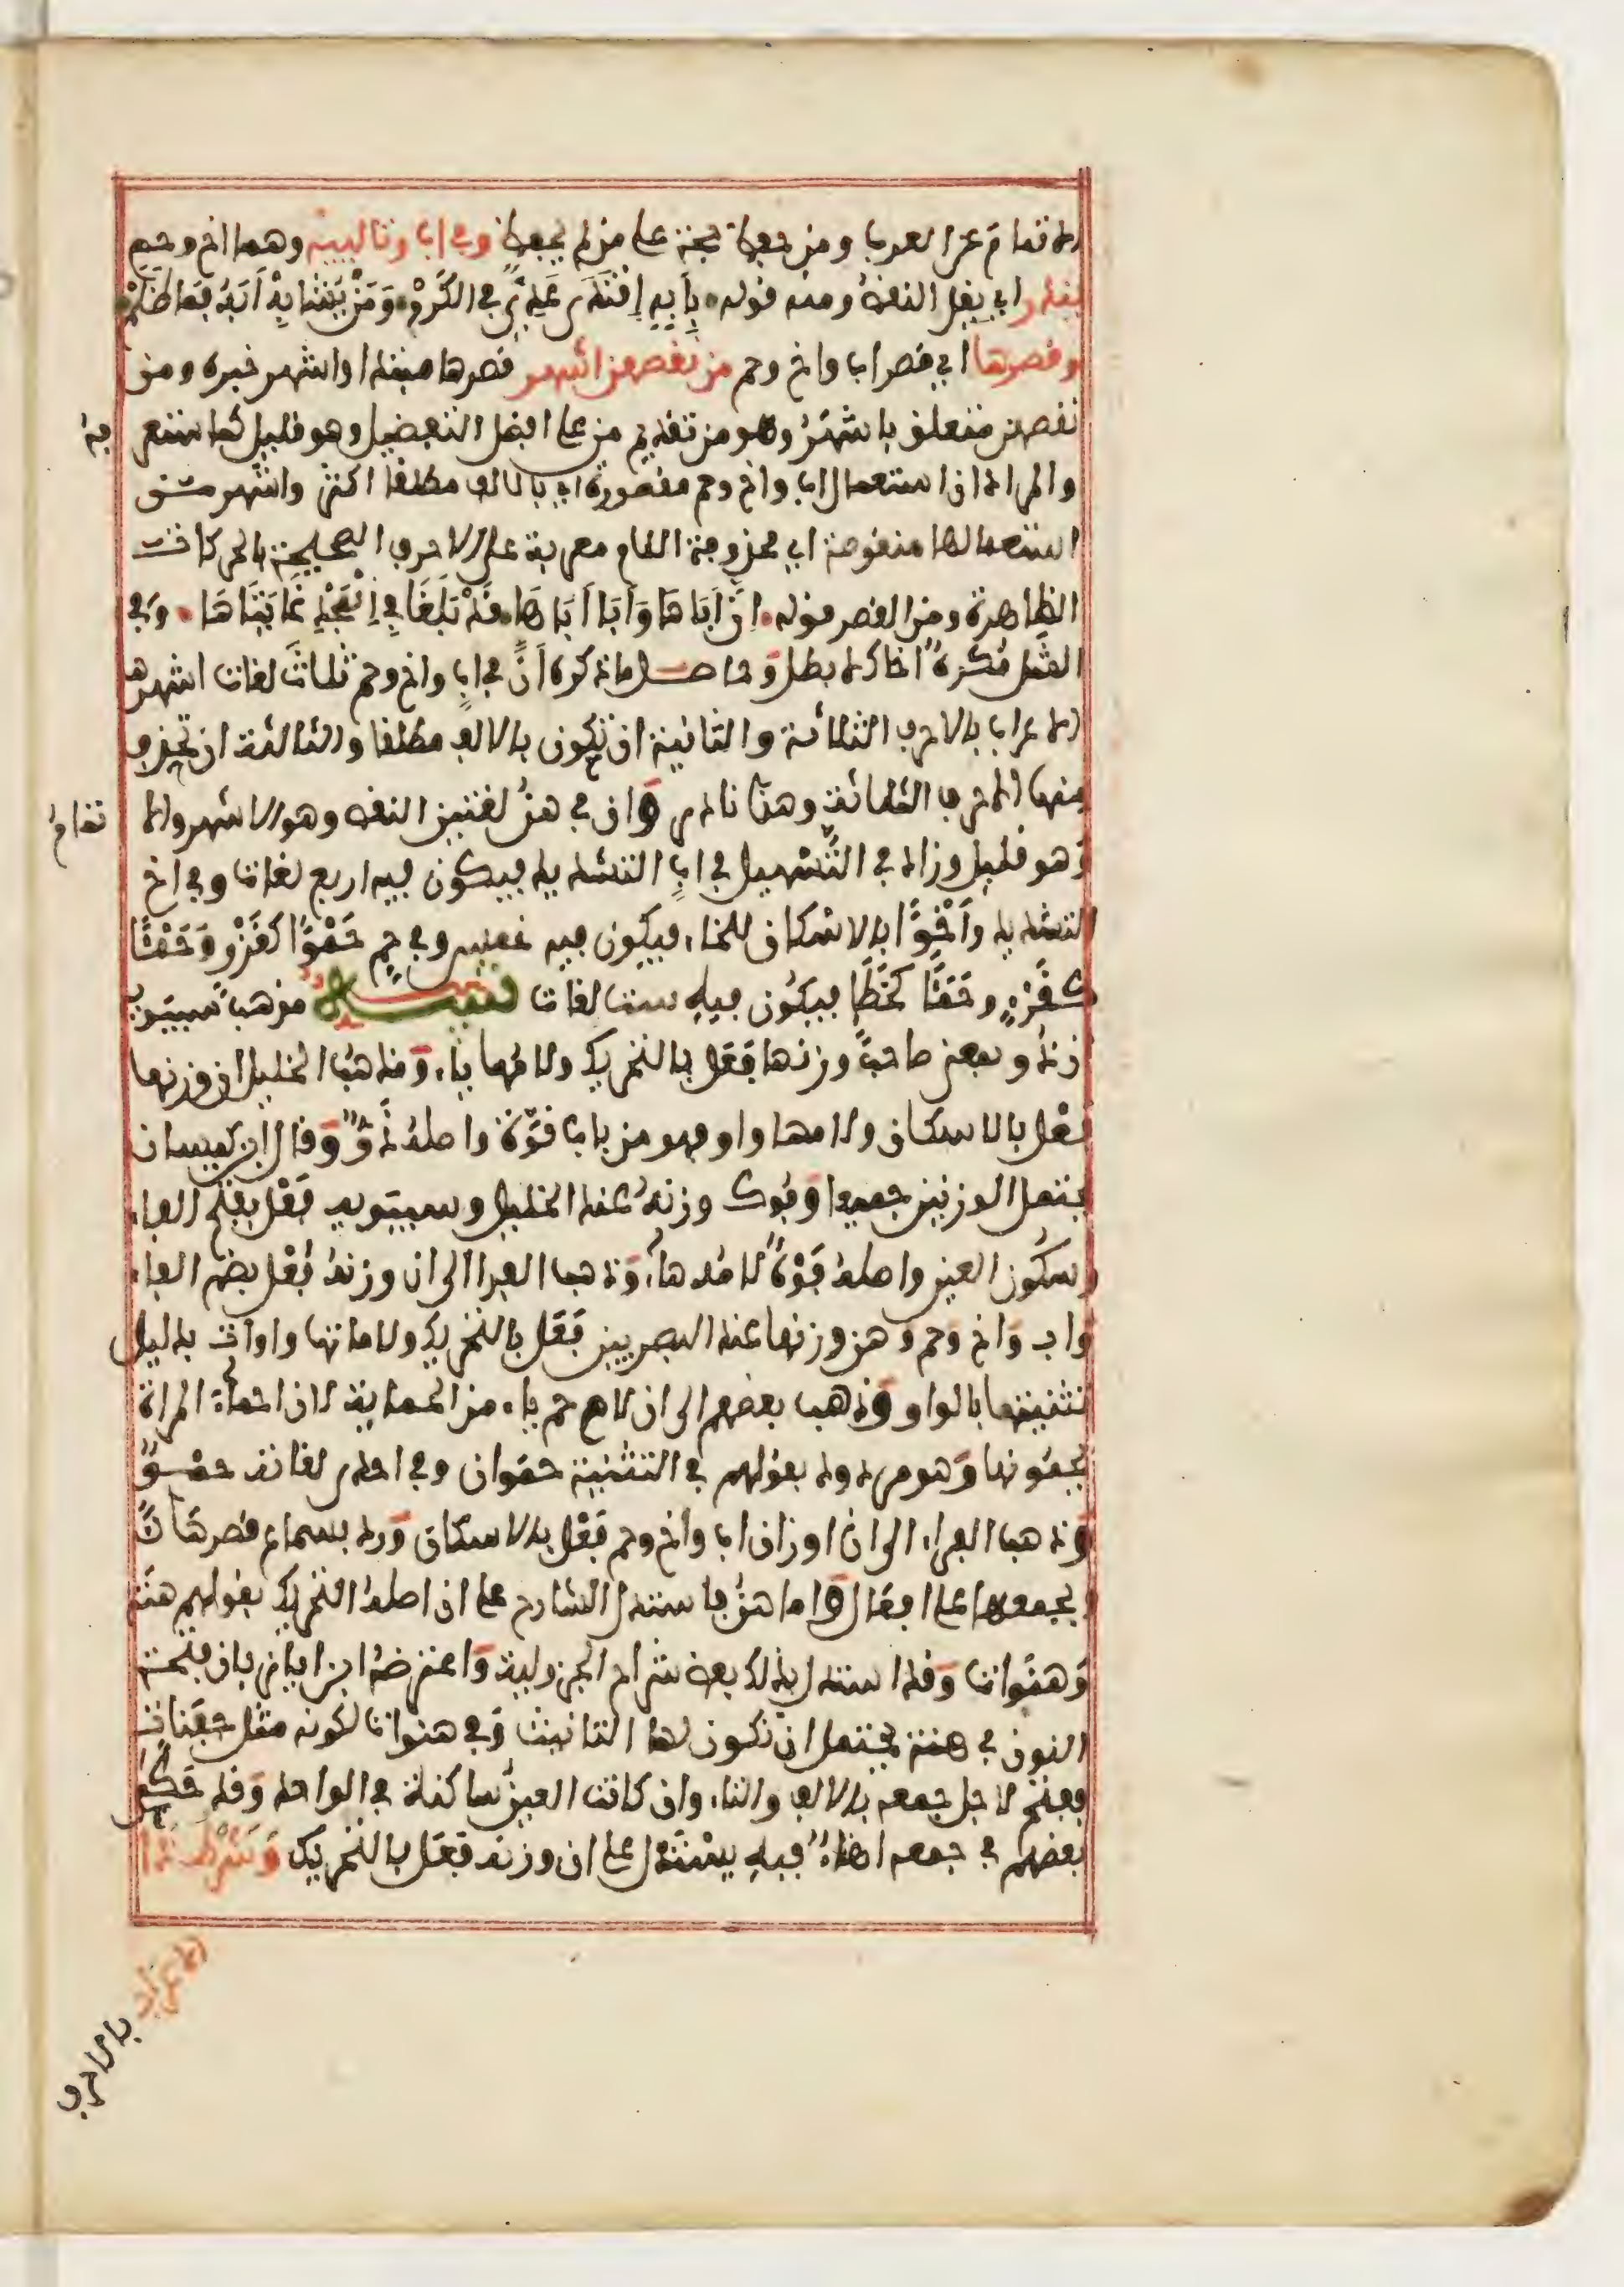 الاتمام عن العرب ومن حفظ حجة على من لم يحفظ وفي اب وتالييه وهما اخ وحم
يندر اي يقل النقص ومنه قوله بِأَبِهِ اِقْتَدَى عَدِيٌّ في الكَرَمْ وَمَنْ يُشَابِهْ أَبَهُ فَمَا ظَلَمْ
وقصرها اي قصر اب واخ وحم من نقصهن اشهر قصرها مبتدا واشهر خبره ومن
نقصهن متعلق باشهر وهو من تقديم من على افعل التفضيل وهو قليل كما ستعرفه
والمراد ان استعمال اب واخ وحم مقصورة اي بالالف مطلقا اكثر واشهر من
استعمالها منقوصة اي محذوفة اللام معربة على الاحرف الصحيحة بالحركات
الظاهرة ومن القصر قوله اِنَّ أَبَاهَا وَأَبَا أَبَاهَا قَدْ بَلَغَا فِي اِلْمَجْدِ غَايَتَاهَا وفي
المثل مُكْرَهٌ أخاك لا بطل وحاصل ما ذكره أَنَّ في اب واخ وحم ثلاث لغات اشهرها
الاعراب بالاحرف الثلاثة والثانية ان تكون بالالف مطلقا والثالثة ان تحذف
منها الاحرف الثلاثة وهذا نادر وان في هن لغتين النقص وهو الاشهر والاتمام
وهو قليل وزاد في التَّسْهيل في ابٍ التشديد فيكون فيه اربع لغات وفي اخ
التشديد وأَخْوًا بالاسكان للخاء فيكون فيه خمس وفي حم حَمْوًا كقَرْوٍ وَحَمْئًا
كقَرْءٍ وحَمَئًا كخَطَإٍ فيكون فيه ست لغات تنبيه مذهب سيبويه
ان ذو بمعنى صاحب وزنها فَعَل بالتحريك ولامها ياء ومذهب الخليل ان وزنها
فَعْل بالاسكان ولامها واو فهو من باب قوّة واصله ذَوّ وقال ابن كيسان
يحتمل الوزنين جميعا وفوك وزنه عند الخليل وسيبويه فَعْل بفتح الفاء
وسكون العين واصله فَوْهٌ لامه هاء وذهب الفرا الى ان وزنه فُعْل بضم الفاء
واب واخ وحم وهن وزنها عند البصريين فَعَل بالتحريك ولاماتها واوات بدليل
تثنيتها بالواو وذهب بعضهم الى ان لام حم ياء من الحماية لان احماء المراة
يحمونها وهو مردود بقولهم في التثنية حموان وفي احدى لغاته حمو
وذهب الفراء الى ان اوزان اب واخ وحم فَعْل بالاسكان ورد بسماع قصرها
وبجمعها على افعال واما هن فاستدل الشارح على ان اصله التحريك بقولهم هنة
وَهَنَوات وقد استدل بذلك بعض شراح الجزولية واعترضه ابن اياز بان فتحة
النون في هنة يحتمل ان تكون لها التانيث وفي هنوات لكونه مثل جفنات
ففتح لاجل جمعه بالالف والتاء وان كانت العين ساكنة في الواحد وقد حكى
بعضهم في جمعه اهناء فبه يستدل على ان وزنه فَعَل بالتحريك وشرط ذا
الاعراب بالاحرف